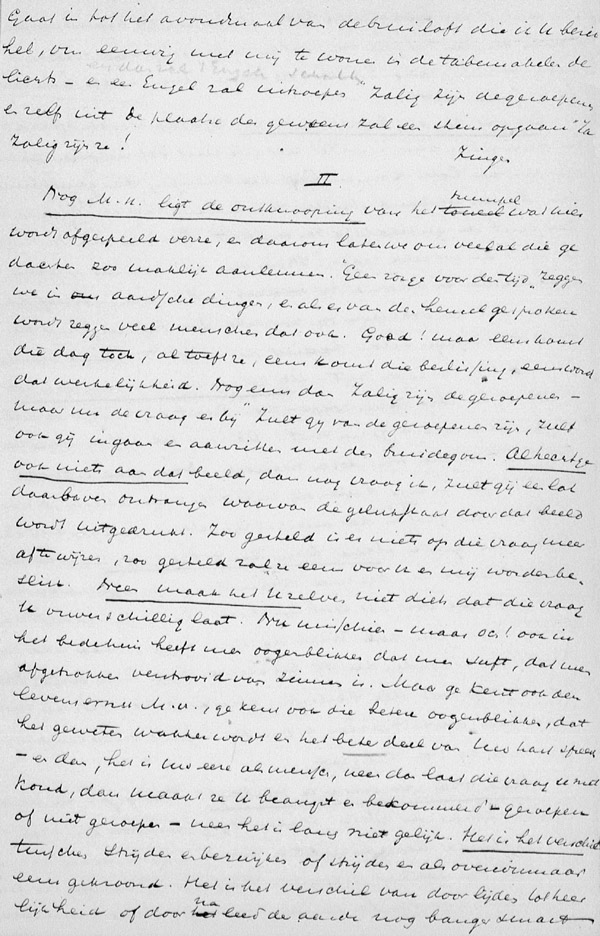 Gaat in tot het avondmaal van de bruiloft die ik u berei
hel, om eeuwig met mij te wonen in de tabernakelen des
lichts – en een Engel zal uitroepen "Zalig zijn de geroepenen
en zelfs uit de plaatse des geweens zal een stem opgaan "Ja
zalig zijn ze!
Zingen
II
Nog M. H. ligt de ontknooping van het treurspel wat hier
wordt afgespeeld verre, en daarom laten we ons veelal die ge
dachten zoo maklijk aanleunen. "Geen zorge voor den tijd" zeggen
we in ons aardsche dingen, en als er van den hemel gesproken
wordt zeggen veel menschen dat ook. Goed! maar eens komt
die dag toch, al toeft ze, eens komt die beslissing, eens wordt
dat werkelijkheid. Nog eens dan zalig zijn de geroepenen –
maar nu de vraag er bij "Zult gij van de geroepenen zijn, zult
ook gij ingaan en aanzitten met den bruidegom. Al hecht ge
ook niets aan dat beeld, dan nog vraag ik, zult gij een lot
daarboven ontvangen waarvan de gelukstaat door dat beeld
wordt uitgedrukt. Zoo gesteld is er niets op die vraag meer
af te wijzen, zoo gesteld zal ze eens voor u en mij worden be-
slist. Neen maak het U zelven niet diets dat die vraag
U onverschillig laat. Nu misschien – maar och! ook in
het bedehuis heeft men oogenblikken dat men suft, dat men
afgetrokken verstrooid van zinnen is. Maar ge kent ook den
levensernst M. H., ge kent ook die betere oogenblikken, dat
het geweten wakker wordt en het beste deel van Uw hart spreekt
– en dan, het is uw eere als mensch, neen dan laat die vraag u niet
koud, dan maakt ze U beangst en bekommerd – geroepen
of niet geroepen – neen het is lang niet gelijk. Het is het verschil
tusschen strijden en bezwijken of strijden en als overwinnaar
eens gekroond. Het is het verschil van door lijden tot heer
lijkheid of door na leed der aarde nog banger smart